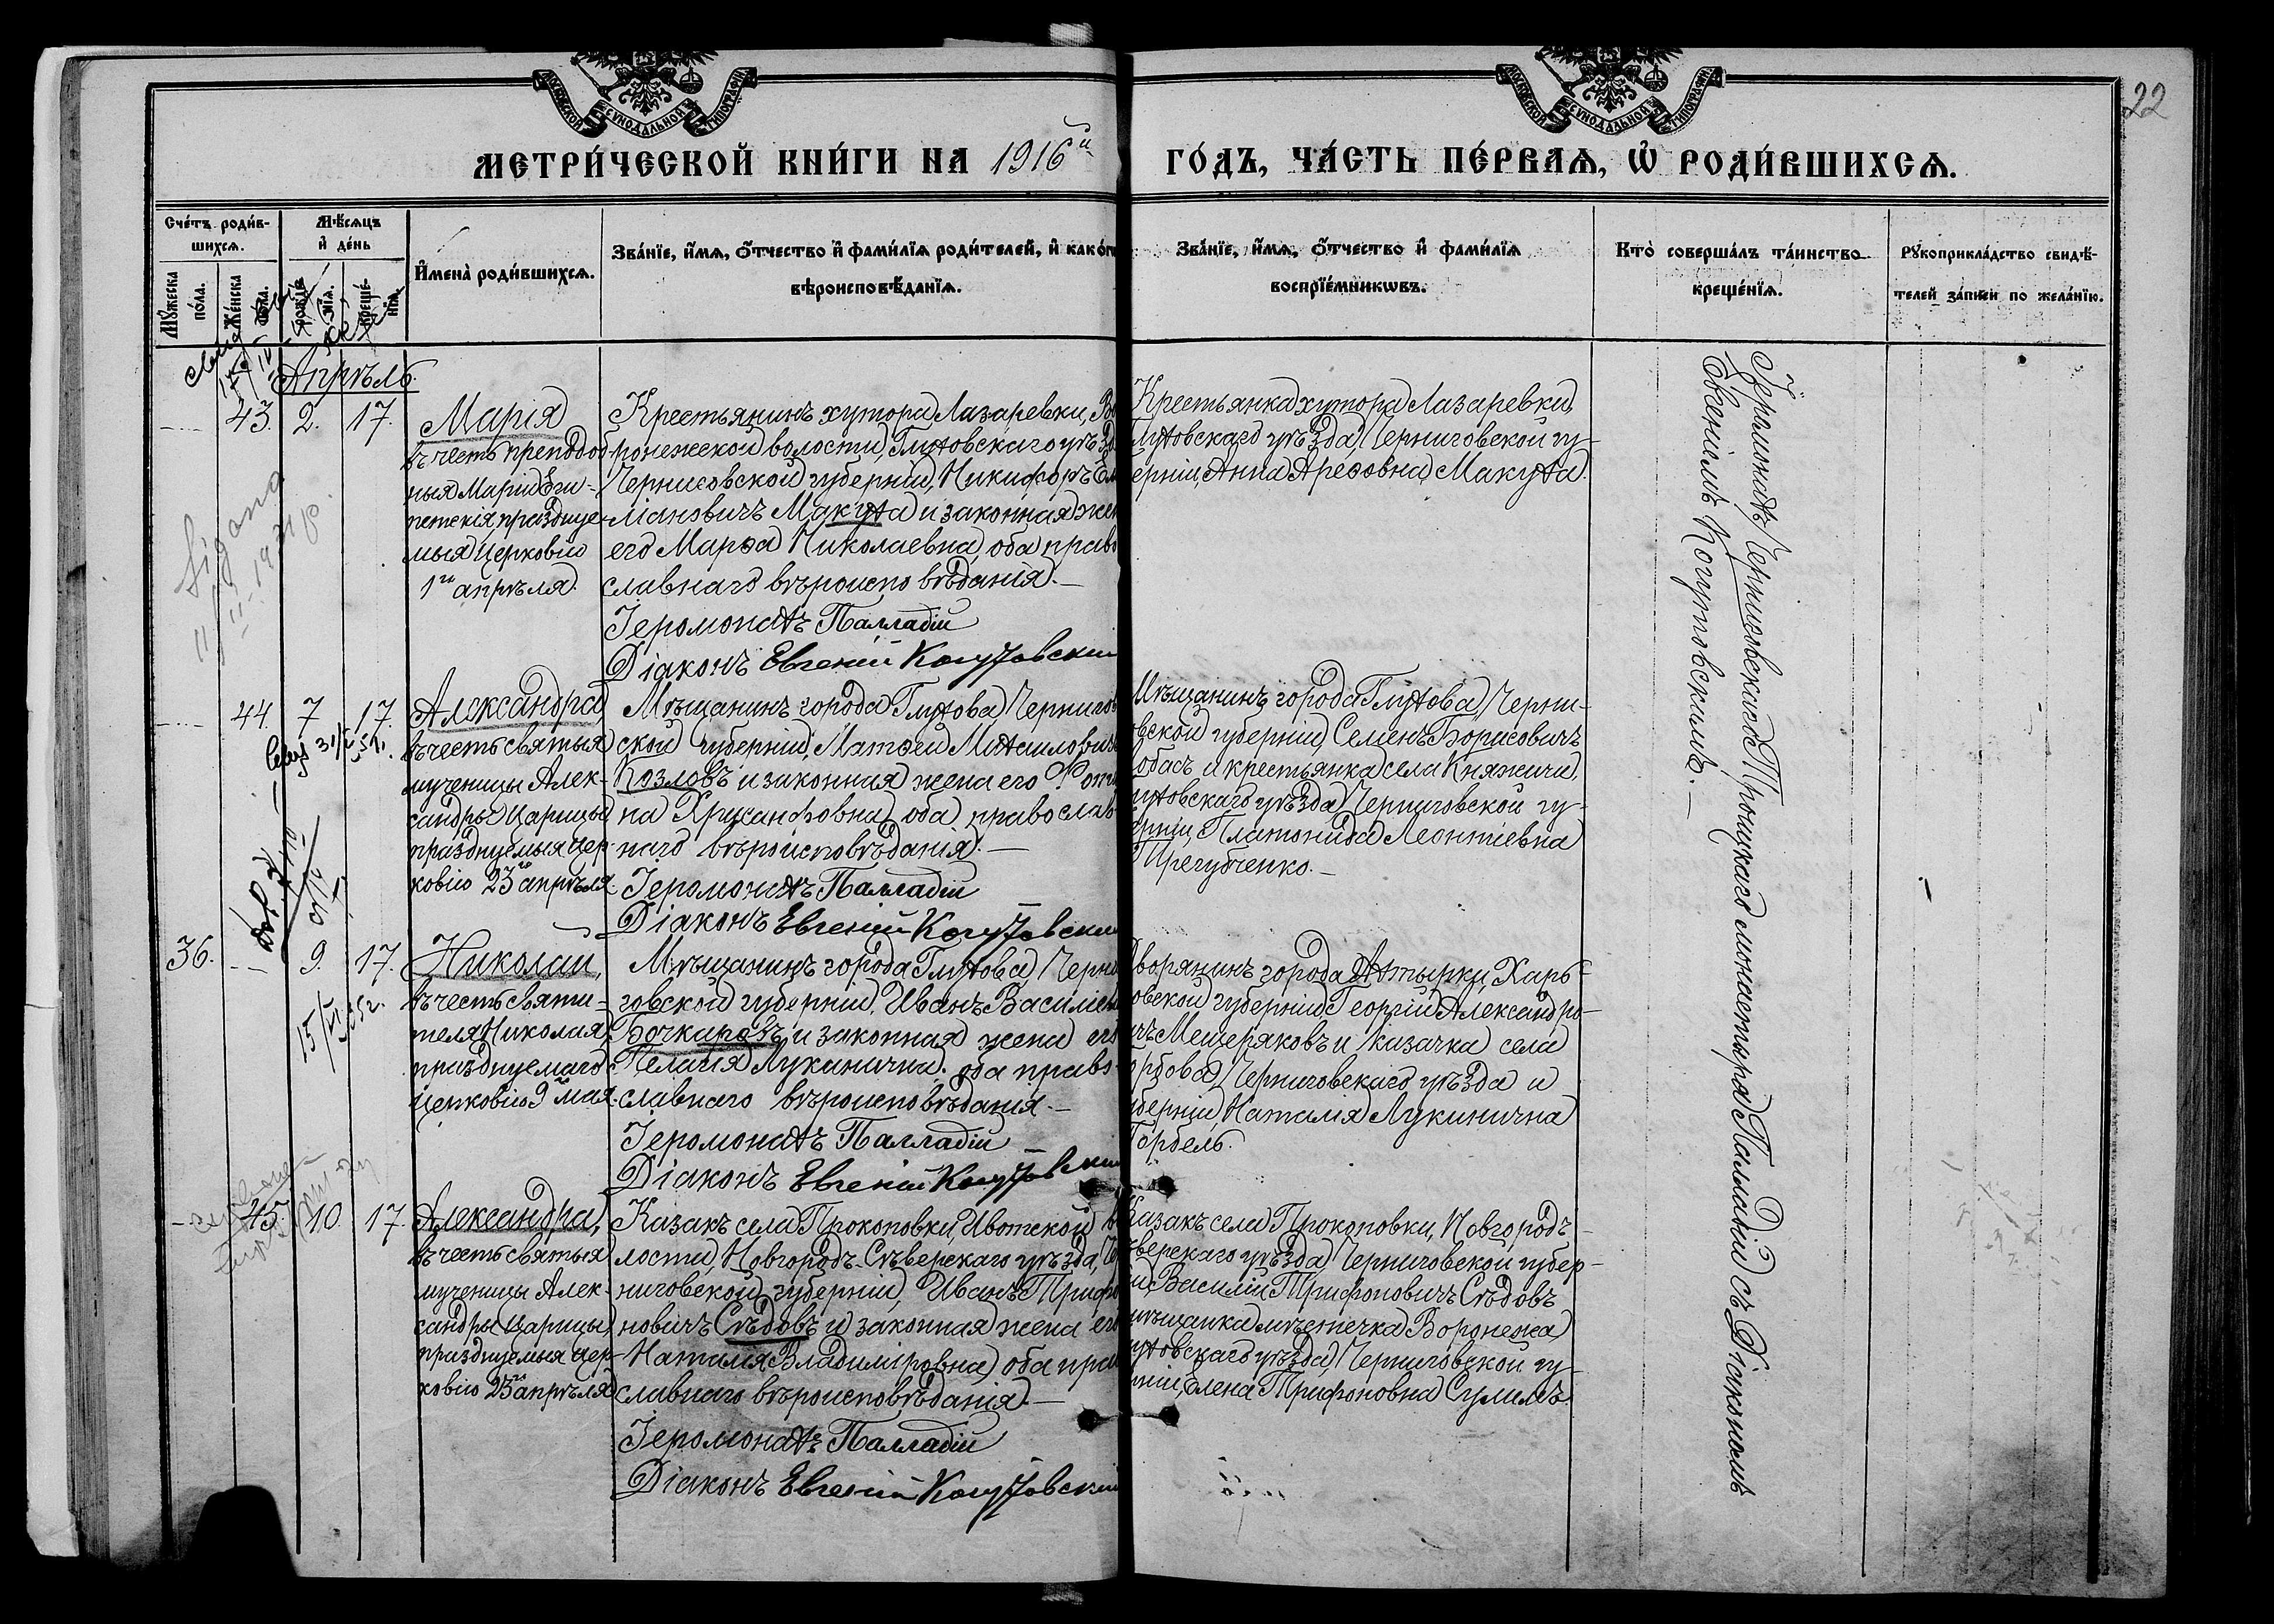 22
МОСКОВСКОЙ СѴНОДАЛЬНОЙ ТИПОГРАФІИ
МОСКОВСКОЙ СѴНОДАЛЬНОЙ ТИПОГРАФІИ
МЕТРИ́ЧЕСКОЙ КНИ́ГИ НА 1916й
ГО́ДЪ, ЧА́СТЬ ПЕ́РВАѦ, Ѽ РОДИ́ВШИХСѦ.
Сче́тъ роди́в-
шихсѧ.
Мꙋ́жеска по́ла.
Же́нска по́ла.
Мѣ́сѧцъ
и҆ де́нь
рожде́нїѧ.
креще́нїѧ.
И҆мена̀ роди́вшихсѧ.
Зва́нїе, и҆́мѧ, ѻ҆́тчество и҆ фами́лїѧ роди́телей, и҆ како́г
вѣроисповѣ́данїѧ.
Зва́нїе, и҆́мѧ, ѻ҆́тчество и҆ фами́лїѧ
воспрїе́мникѡвъ.
Кто̀ соверша́лъ та́инство
креще́нїѧ.
Рꙋкоприкла́дство свидѣ́-
телей за́писи по жела́нїю.
Апрѣль.
43. 2. 17.
Марія
въ честь преподоб-
ныя Маріи Еги-
петскія празднуе-
мыя Церковію
1го апрѣля.
Крестьянинъ хутора Лазаревки, Во
ронежской волости, Глуховскаго уѣзд
Черниговской губерніи, Никифоръ Ем
мановичъ Макуха и законная жен
его Марѳа Николаевна, оба право
славнаго вѣроисповѣданія.—
Іеромонахъ Палладій
Діаконъ Евгеній Когутовский
Крестьянка хутора Лазаревки,
Глуховскаго уѣзда, Черниговской гу-
берніи, Анна Арефовна Макуха.
44 7 17.
Александра
въ честь святыя
мученицы Алек-
сандры Царицы
празднуемыя Цер-
ковію 23го апрѣля.
Мѣщанинъ города Глухова, Чернигов
ской губерніи, Матѳей Михаиловичъ
Козловъ и законная жена его
на Хрисанфовна, оба православ
наго вѣроисповѣданія.—
Іеромонахъ Палладій
Діаконъ Евгеній Когутовский
Мѣщанинъ города Глухова, Черни-
овской губерніи, Семенъ Борисовичъ
и крестьянка села Княжичи,
луховскаго уѣзда, Черниговской гу-
ерніи, Платонида Леонтіевна
36. - 9. 17.
Николай,
въ честь святи-
теля Николая,
празднуемаго
Церковію 9го мая.
Мѣщанинъ города Глухова, Черни
говской губерніи, Иванъ Василіев
Бочкаревъ и законная жена его
Пелагія Лукинична, оба право
славнаго вѣроисповѣданія.—
Іеромонахъ Палладій
Діаконъ Евгеній Когутовский
Дворянинъ города Ахтырки, Харь-
овской губерніи Георгій Александро-
ичъ Мещеряковъ и казачка села
орбова, Черниговскаго уѣзда и
уберніи, Наталія Лукинична
Горбель.
45. 10. 17.
Александра,
въ честь святыя
мученицы Алек-
сандры Царицы,
празднуемыя Цер-
ковію 23го апрѣля.
Казакъ села Прокоповки, Ивотской во
лости, Новгородъ-Сѣверскаго уѣзда, Че
ниговской губерніи, Иванъ Трифо
новичъ Сѣдовъ и законная жена его
Наталія Владиміровна, оба прав
славнаго вѣроисповѣданія.—
Іеромонахъ Палладій
Діаконъ Евгеній Когутовский
Казакъ села Прокоповки, Новгородъ-
верскаго уѣзда, Черниговской губер-
іи, Василій Трифоновичъ Сѣдовъ
мѣщанка мѣстечка Воронежа
луховскаго уѣзда, Черниговской гу-
рніи, Елена Трифоновна
Іеромонахъ Черниговскаго Троицкаго монастыря Палладій съ Діакономъ
Евгеніемъ Когутовскимъ.—